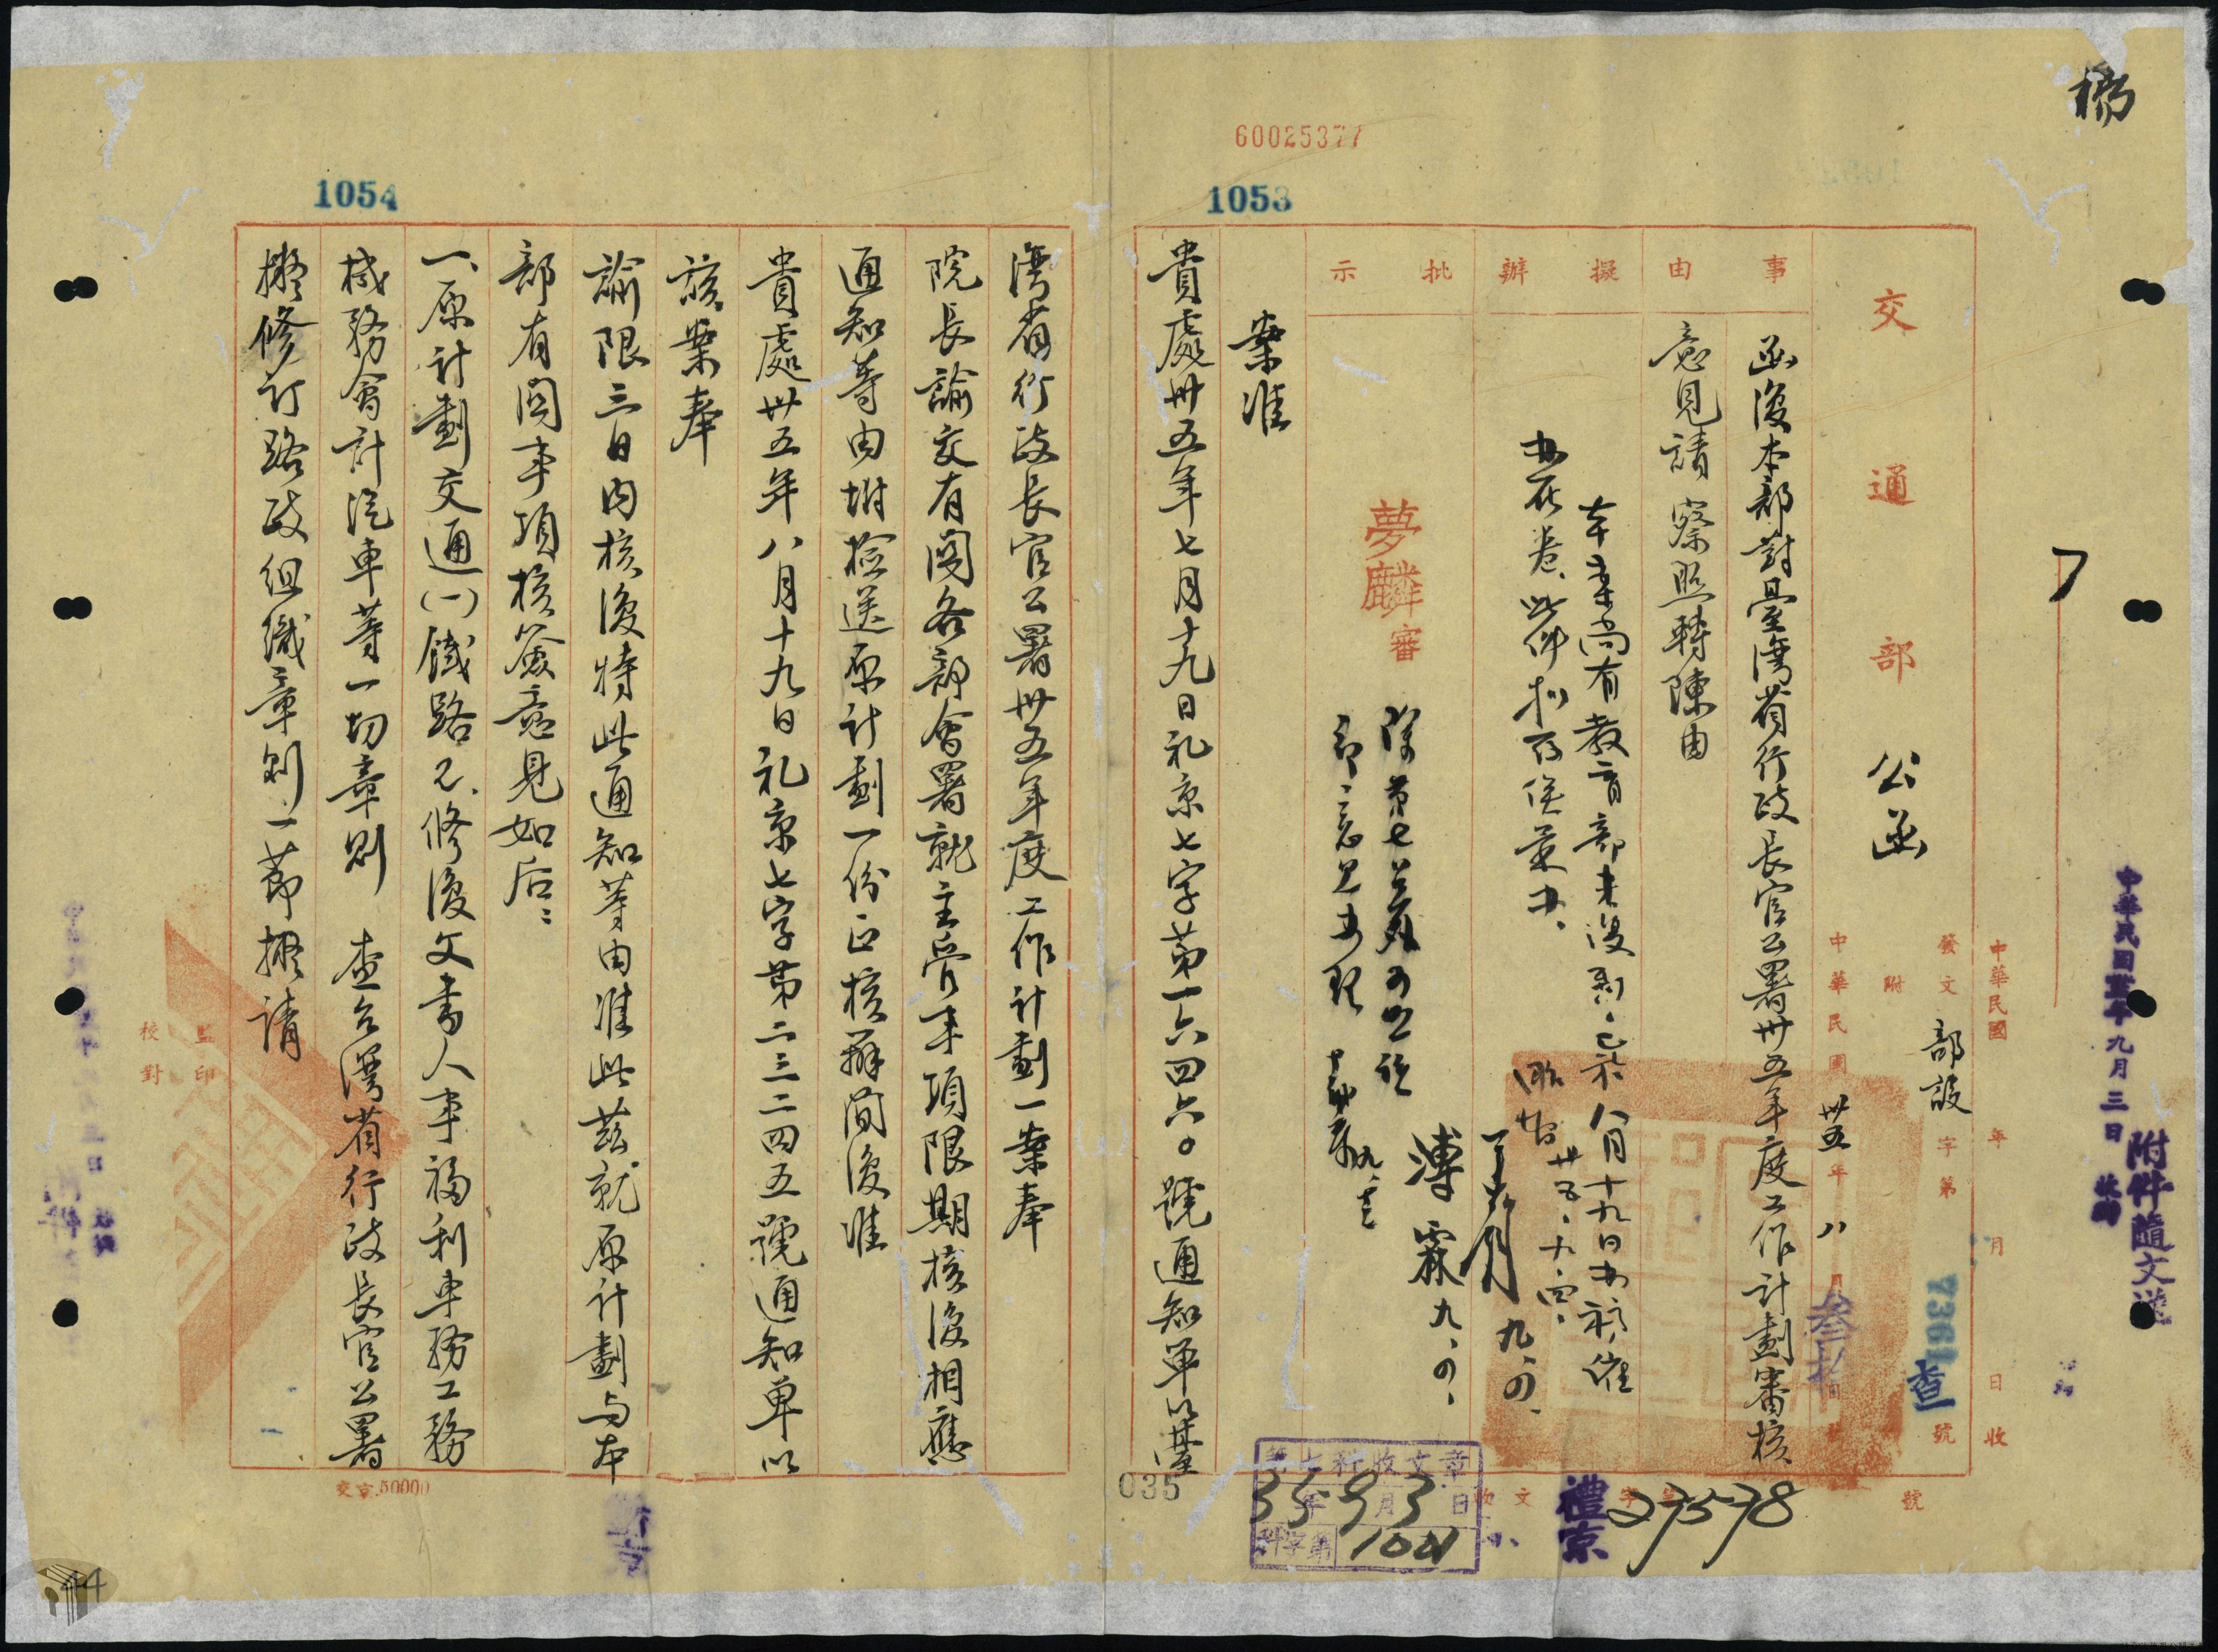 中華民國卅五年九月三日 收到
附件隨文送
中華民國 年 月 日 收
發文 部設 字第 7361 號
附
交通部 公函
中華民國 卅五年 八 月 叁拾 日
事由
函復本部對臺灣省行政長官公署卅五年度工作計劃審核
意見請 察照轉陳由
擬辦
本案尚有教育部未復到,已於八月十九日辦稿催
辦在卷,此件擬存俟彙辦。
卅五、九、四、
批示
夢麟 審
溥霖 九、四、
案准
貴處卅五年七月十九日礼京七字第一六四六〇號通知單以臺
灣省行政長官公署卅五年度工作計劃一案奉
院長諭交有関各部會署就主管事項限期核復相應
通知等由坿檢送原計劃一份正核辦間復准
貴處卅五年八月十九日礼京七字第二三二四五號通知單以
該案奉
諭限三日內核復特此通知等由准此茲就原計劃与本
部有関事項核簽意見如后:
一、原計劃交通(一)鐵路乙、修復文書人事福利車務工務
機務會計汽車等一切章則 查台灣省行政長官公署
擬修訂路政組織章則一節擬請
監印
校對
禮京 27578 號
收文 字第
第七科收文章
35年9月3日
科字第
1053
1054
60025377
035
交京.50000